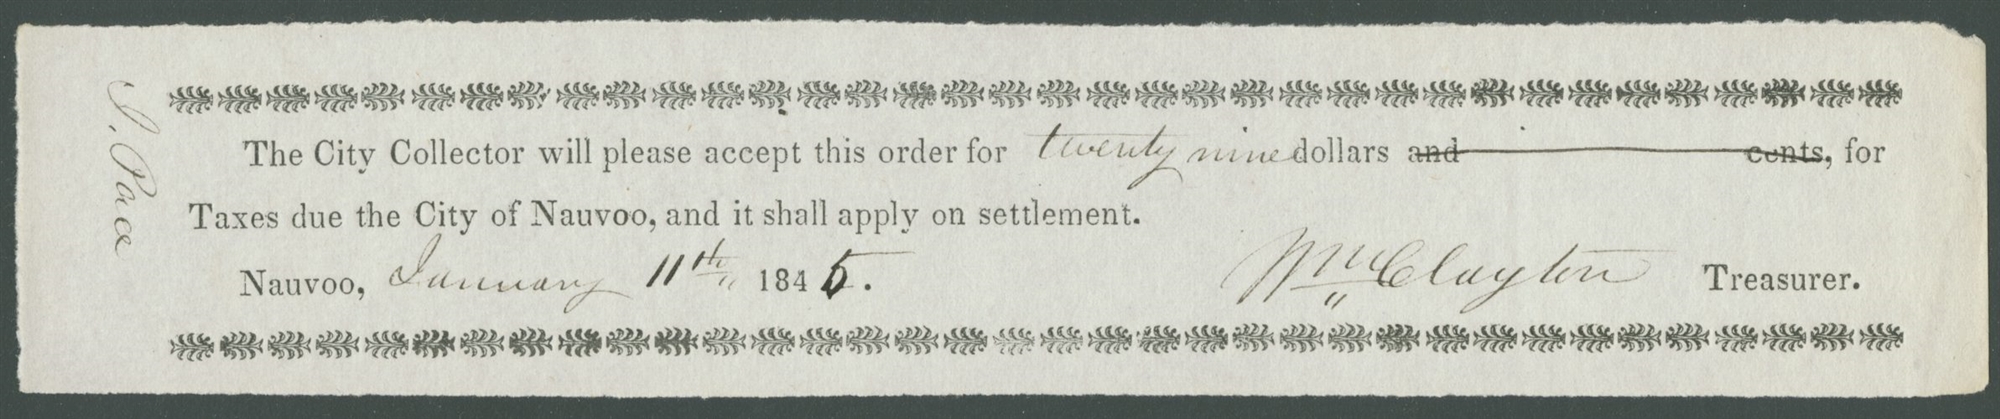 J. Pace
The City Collector will please accept this order for twenty nine dollars and cents, for
Taxes due the City of Nauvoo, and it shall apply on settlement.
Nauvoo, January 11th 1845. Wm Clayton Treasurer.